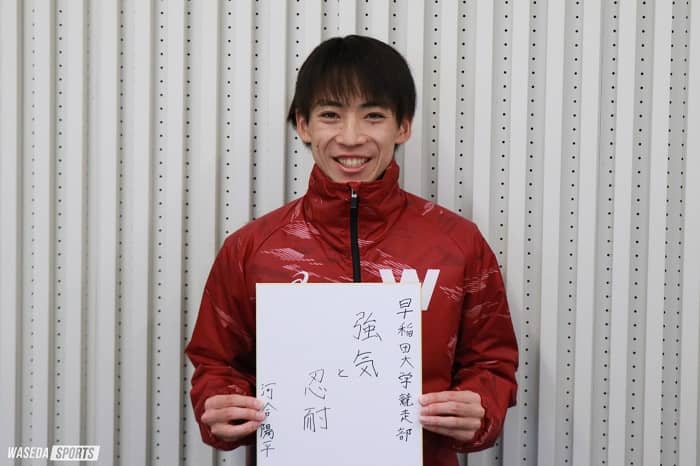 早稲田大学競走部
強気
と
忍耐
河合陽平
W
WASEDA SPORTS